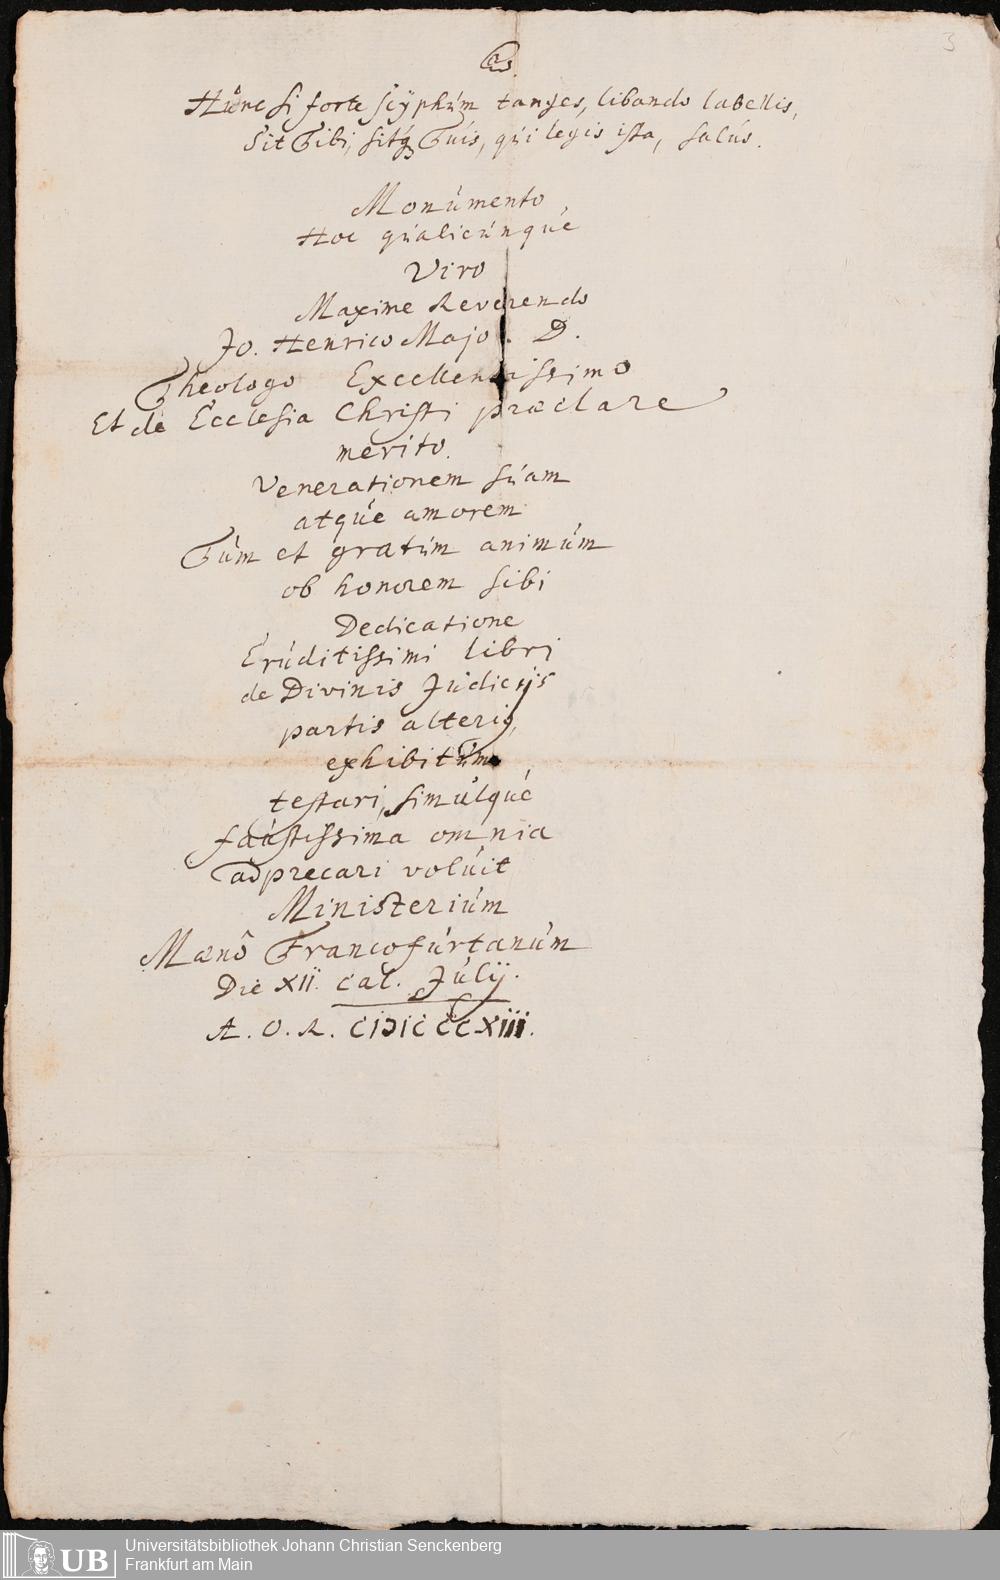 3
Hunc si forte scyphúm tanges, libando labellis,
Sit Tibi, sitq́ꝫ Túis, qúi legis ista, salús.
Monúmento
Hoc qúalicúnqúe
Viro
Maxime Reverendo
Jo. Henrico Majo. D.
Theologo Excellentissimo
Et de Ecclesia Christi præclare
merito.
Venerationem súam
atqúe amorem
Túm et gratúm animúm
ob honorem sibi
Dedicatione
Erúditissimi libri
de Divinis Júdicijs
partis alteriꝰ,
exhibitúm
testari, simúlqúe
faústissima omnia
adprecari volúit
Ministeriúm
Mæno Francofúrtanúm
Die XII. Cal. Júlij.
A. O. R. CIƆIC CCXIII.
UB
Universitätsbibliothek Johann Christian Senckenberg
Frankfurt am Main